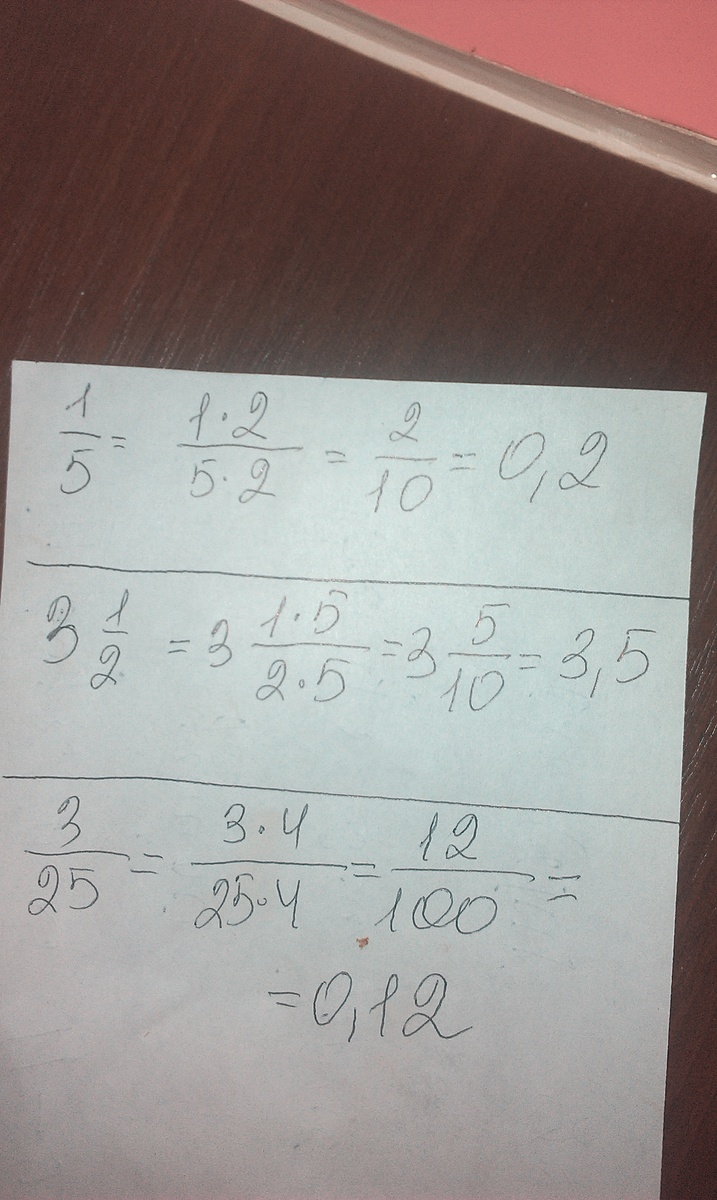 1/5 = 1·2/5·2 = 2/10 = 0,2
3 1/2 = 3 1·5/2·5 = 3 5/10 = 3,5
3/25 = 3·4/25·4 = 12/100 =
= 0,12